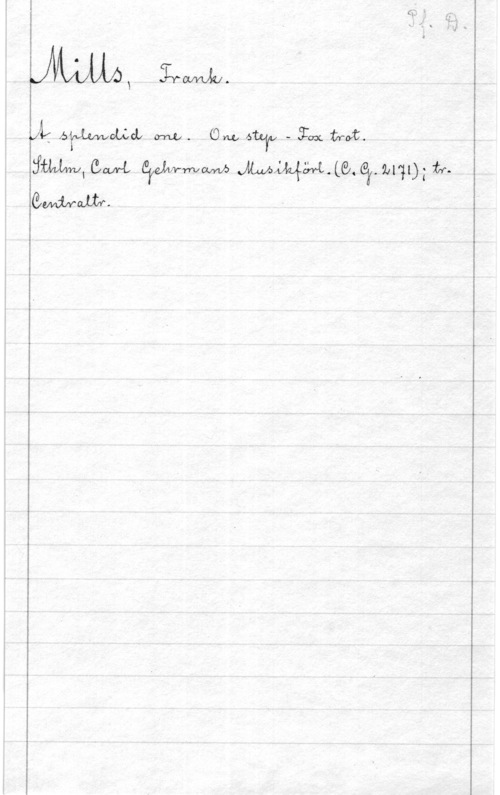 Pf. D.
Mills, Frank.
A splendid one. One step - Fox trot.
Sthlm, Carl Gehrmans Musikförl. (C. G. 2171); tr.
Centraltr.